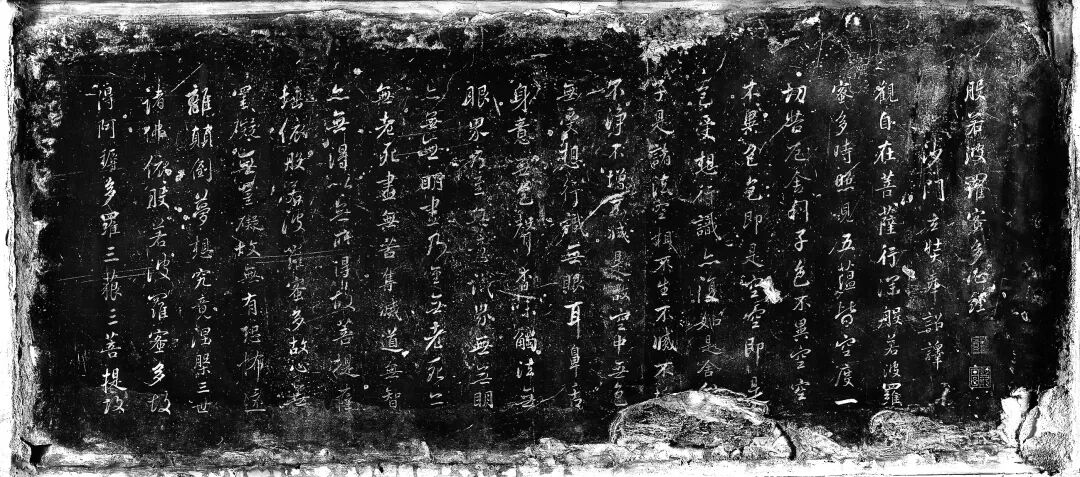 般若波羅蜜多心經
沙門玄奘奉詔譯
觀自在菩薩行深般若波羅
蜜多時照見五蘊皆空度一
切苦厄舍利子色不異空空
不異色色即是空空即是
色受想行識亦復如是舍利
子是諸法空相不生不滅不
不淨不增不減是故空中無色
無受想行識無眼耳鼻舌
身意無色聲香味觸法無
眼界乃至無意識界無無明
亦無無明盡乃至無老死亦
無老死盡無苦集滅道無智
亦無得以無所得故菩提薩
埵依般若波羅蜜多故心無
罣礙無罣礙故無有恐怖遠
離顛倒夢想究竟涅槃三世
諸佛依般若波羅蜜多故
得阿耨多羅三藐三菩提故